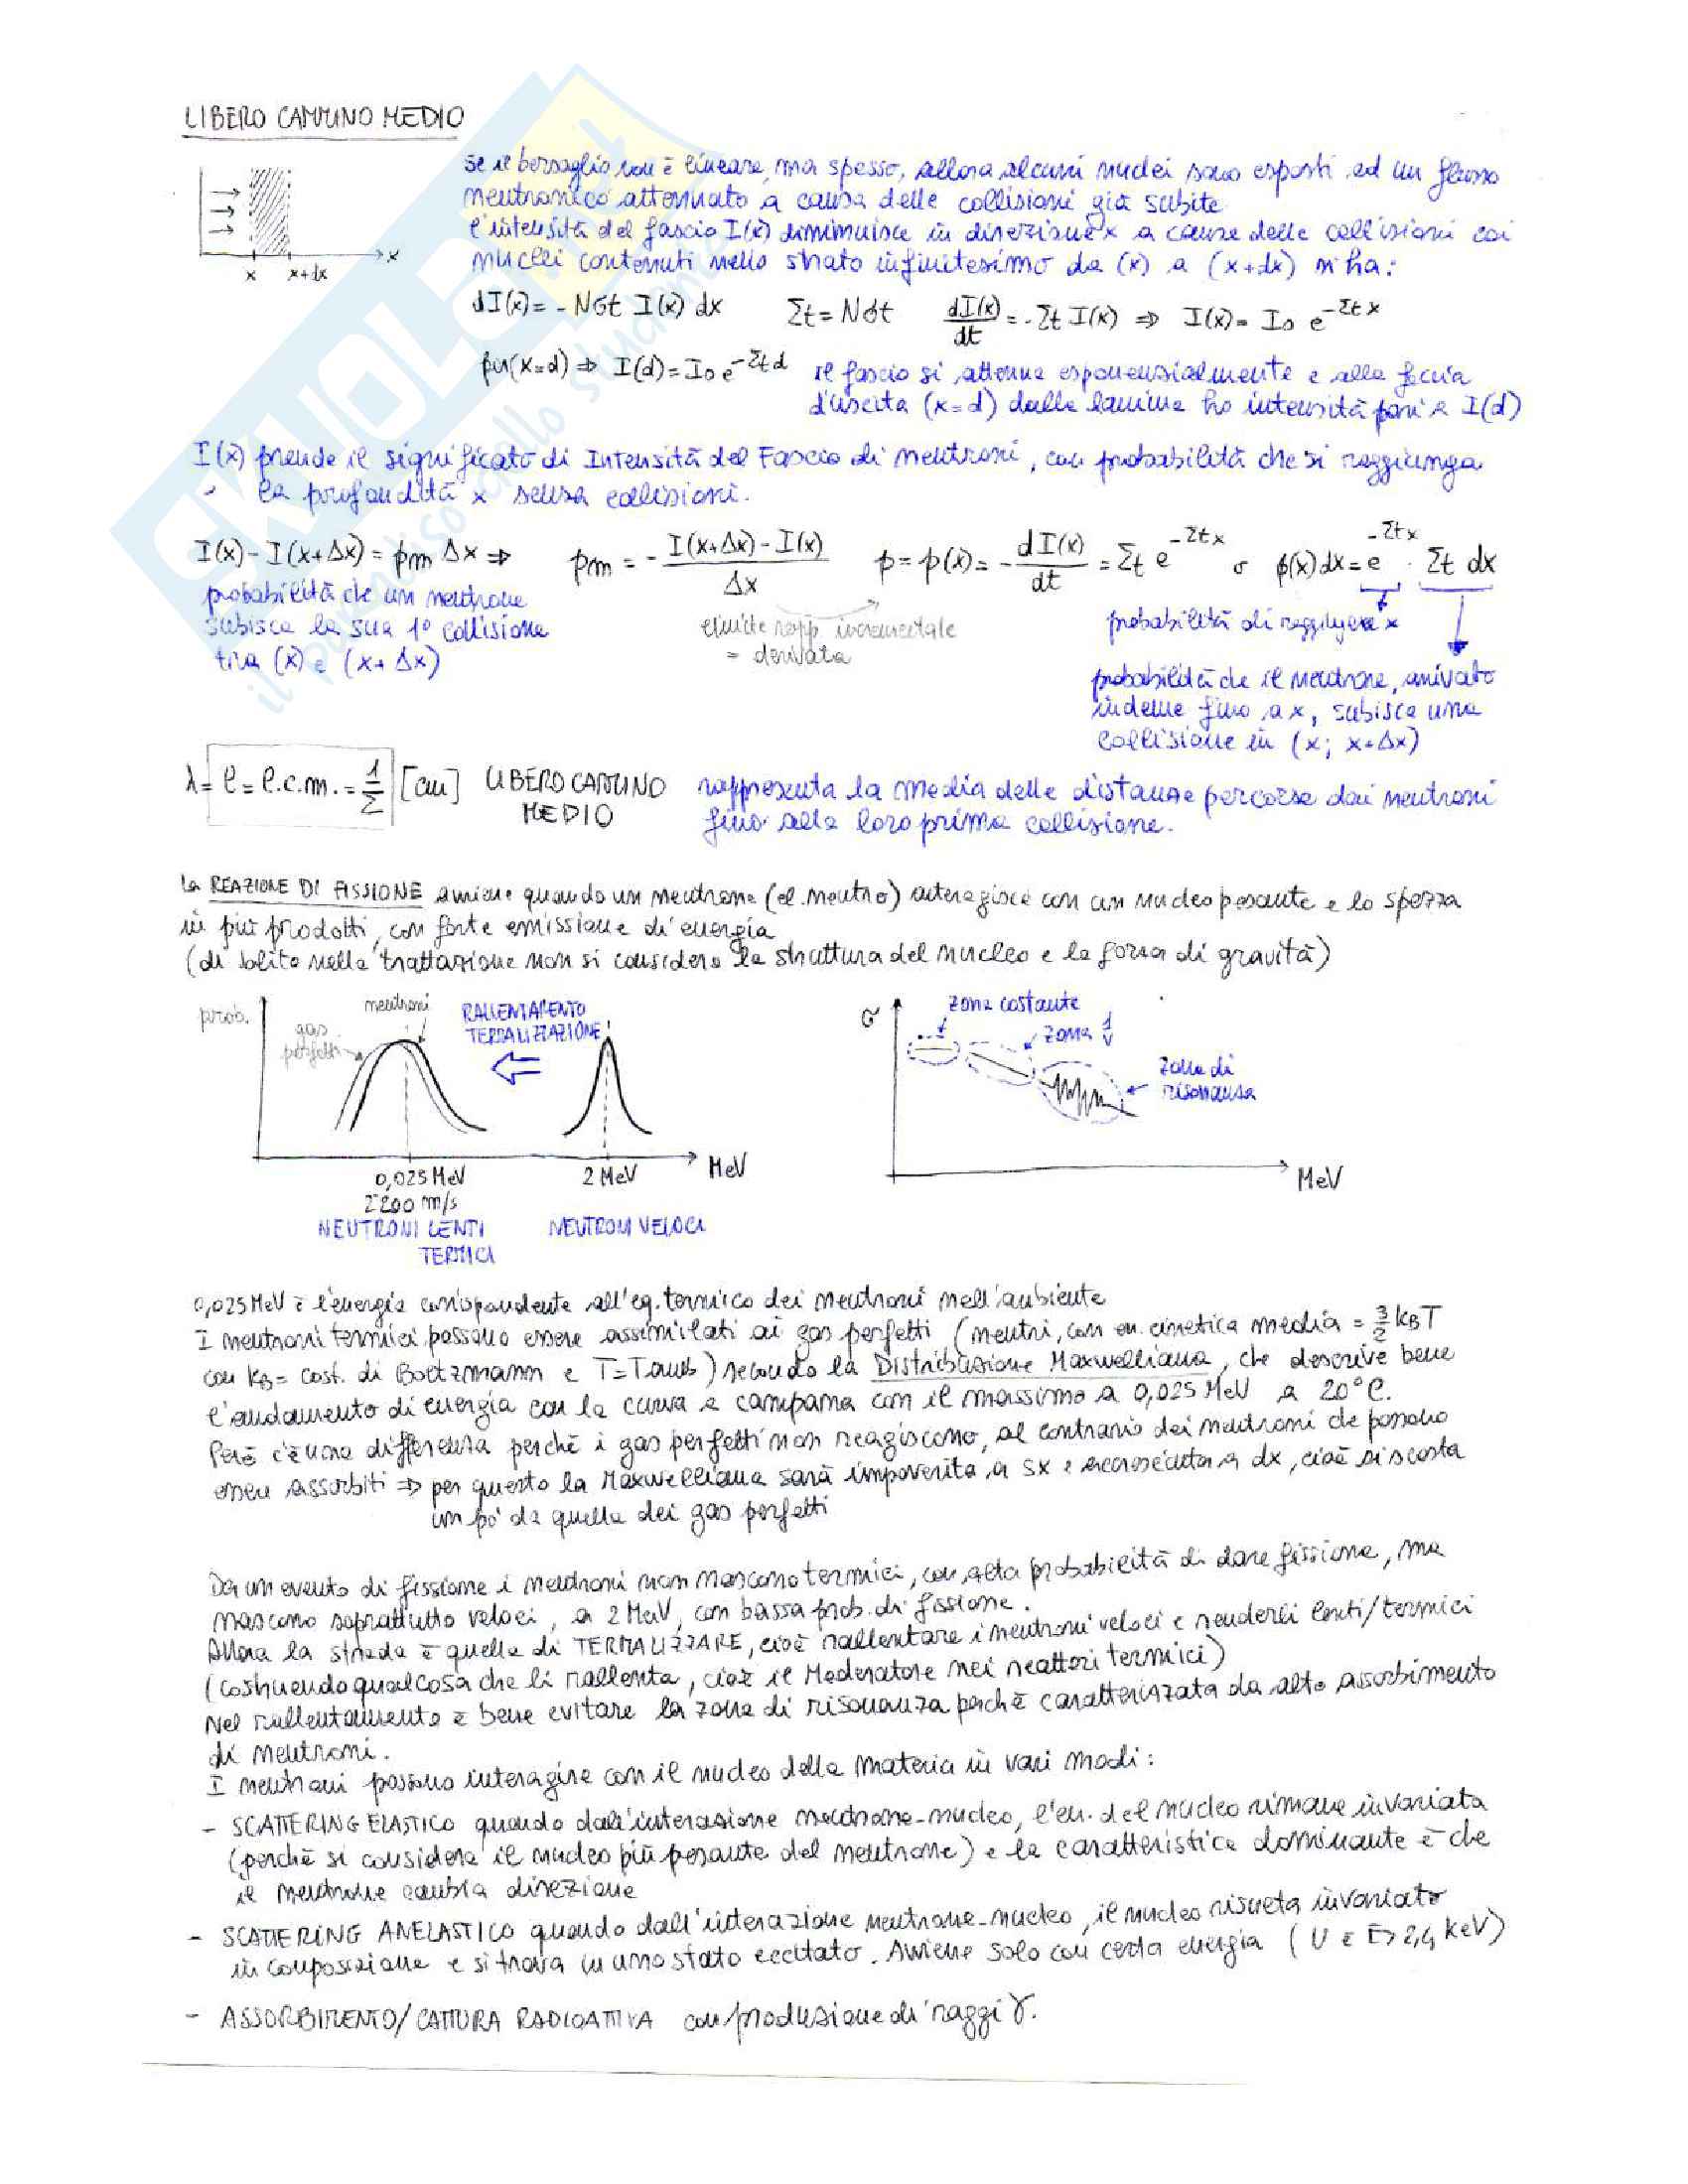 LIBERO CAMMINO MEDIO
se il bersaglio non è lineare, ma spesso, allora alcuni nuclei sono esposti ad un flusso
neutronico attenuato a causa delle collisioni già subite
l'intensità del fascio I(x) diminuisce in direzione x a causa delle collisioni coi
nuclei contenuti nello strato infinitesimo da (x) a (x+dx) si ha:
x x+dx x
dI(x) = - Nσt I(x) dx Σt = Nσt dI(x)/dt = - Σt I(x) ⇒ I(x) = I₀ e^-Σt x
per (x=d) ⇒ I(d) = I₀ e^-Σt d il fascio si attenua esponenzialmente e alla faccia
d'uscita (x=d) della lamina ho intensità pari a I(d)
I(x) prende il significato di Intensità del Fascio di neutroni, con probabilità che si raggiunga
la profondità x senza collisioni.
I(x) - I(x+Δx) = pm Δx ⇒ pm = - I(x+Δx) - I(x) / Δx p = p(x) = - dI(x)/dt = Σt e^-Σt x o p(x) dx = e^-Σt x · Σt dx
probabilità che un neutrone
subisca la sua 1° collisione
tra (x) e (x+Δx)
limite rapp. incrementale
= derivata
probabilità di raggiungere x
probabilità che il neutrone, arrivato
indenne fino a x, subisca una
collisione in (x; x+Δx)
λ = l = l.c.m. = 1/Σ [cm] LIBERO CAMMINO MEDIO
rappresenta la media delle distanze percorse dai neutroni
fino alla loro prima collisione.
la REAZIONE DI FISSIONE avviene quando un neutrone (el. neutro) interagisce con un nucleo pesante e lo spezza
in più prodotti, con forte emissione di energia
(di solito nella trattazione non si considera la struttura del nucleo e la forza di gravità)
prob.
gas perfetti
neutroni
RALLENTAMENTO
TERMALIZZAZIONE
0,025 MeV
2200 m/s
NEUTRONI LENTI
TERMICI
2 MeV
NEUTRONI VELOCI
MeV
σ
zona costante
zona 1/v
zona di
risonanza
MeV
0,025 MeV è l'energia corrispondente all'eq. termico dei neutroni nell'ambiente
I neutroni termici possono essere assimilati ai gas perfetti (neutri, con en. cinetica media = 3/2 kBT
con kB = cost. di Boltzmann e T=Tamb) secondo la Distribuzione Maxwelliana, che descrive bene
l'andamento di energia con la curva a campana con il massimo a 0,025 MeV a 20°C.
Però c'è una differenza perchè i gas perfetti non reagiscono, al contrario dei neutroni che possono
essere assorbiti ⇒ per questo la Maxwelliana sarà impoverita a sx e accresciuta a dx, cioè si scosta
un pò da quella dei gas perfetti
Da un evento di fissione i neutroni non nascono termici, con alta probabilità di dare fissione, ma
nascono soprattutto veloci, a 2 MeV, con bassa prob. di fissione.
Allora la strada è quella di TERMALIZZARE, cioè rallentare i neutroni veloci e renderli lenti/termici
(costruendo qualcosa che li rallenta, cioè il Moderatore nei reattori termici)
Nel rallentamento è bene evitare la zona di risonanza perchè caratterizzata da alto assorbimento
di neutroni.
I neutroni possono interagire con il nucleo della materia in vari modi:
- SCATTERING ELASTICO quando dall'interazione neutrone-nucleo, l'en. del nucleo rimane invariata
(perchè si considera il nucleo più pesante del neutrone) e la caratteristica dominante è che
il neutrone cambia direzione
- SCATTERING ANELASTICO quando dall'interazione neutrone-nucleo, il nucleo risulta invariato
in composizione e si trova in uno stato eccitato. Avviene solo con certa energia (U E> 2,4 keV)
- ASSORBIMENTO/CATTURA RADIOATTIVA con produzione di raggi γ.